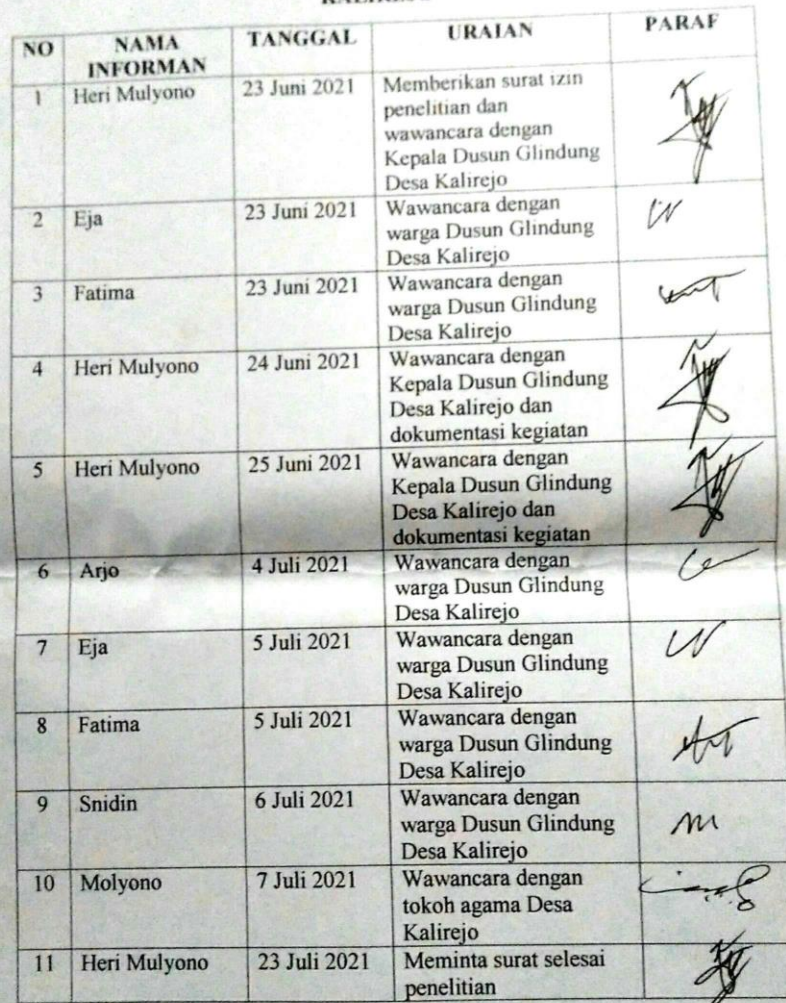 NO NAMA INFORMAN TANGGAL URAIAN PARAF
1 Heri Mulyono 23 Juni 2021 Memberikan surat izin
penelitian dan
wawancara dengan
Kepala Dusun Glindung
Desa Kalirejo
2 Eja 23 Juni 2021 Wawancara dengan
warga Dusun Glindung
Desa Kalirejo
3 Fatima 23 Juni 2021 Wawancara dengan
warga Dusun Glindung
Desa Kalirejo
4 Heri Mulyono 24 Juni 2021 Wawancara dengan
Kepala Dusun Glindung
Desa Kalirejo dan
dokumentasi kegiatan
5 Heri Mulyono 25 Juni 2021 Wawancara dengan
Kepala Dusun Glindung
Desa Kalirejo dan
dokumentasi kegiatan
6 Arjo 4 Juli 2021 Wawancara dengan
warga Dusun Glindung
Desa Kalirejo
7 Eja 5 Juli 2021 Wawancara dengan
warga Dusun Glindung
Desa Kalirejo
8 Fatima 5 Juli 2021 Wawancara dengan
warga Dusun Glindung
Desa Kalirejo
9 Snidin 6 Juli 2021 Wawancara dengan
warga Dusun Glindung
Desa Kalirejo
10 Molyono 7 Juli 2021 Wawancara dengan
tokoh agama Desa
Kalirejo
11 Heri Mulyono 23 Juli 2021 Meminta surat selesai
penelitian